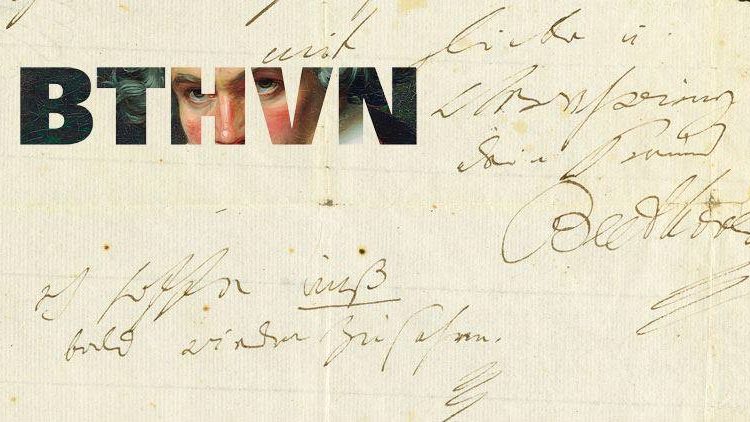 BTHVN
mit liebe u.
Verehrung
dein Freund
Beethoven
ich hoffe
bald wieder zu sehen.